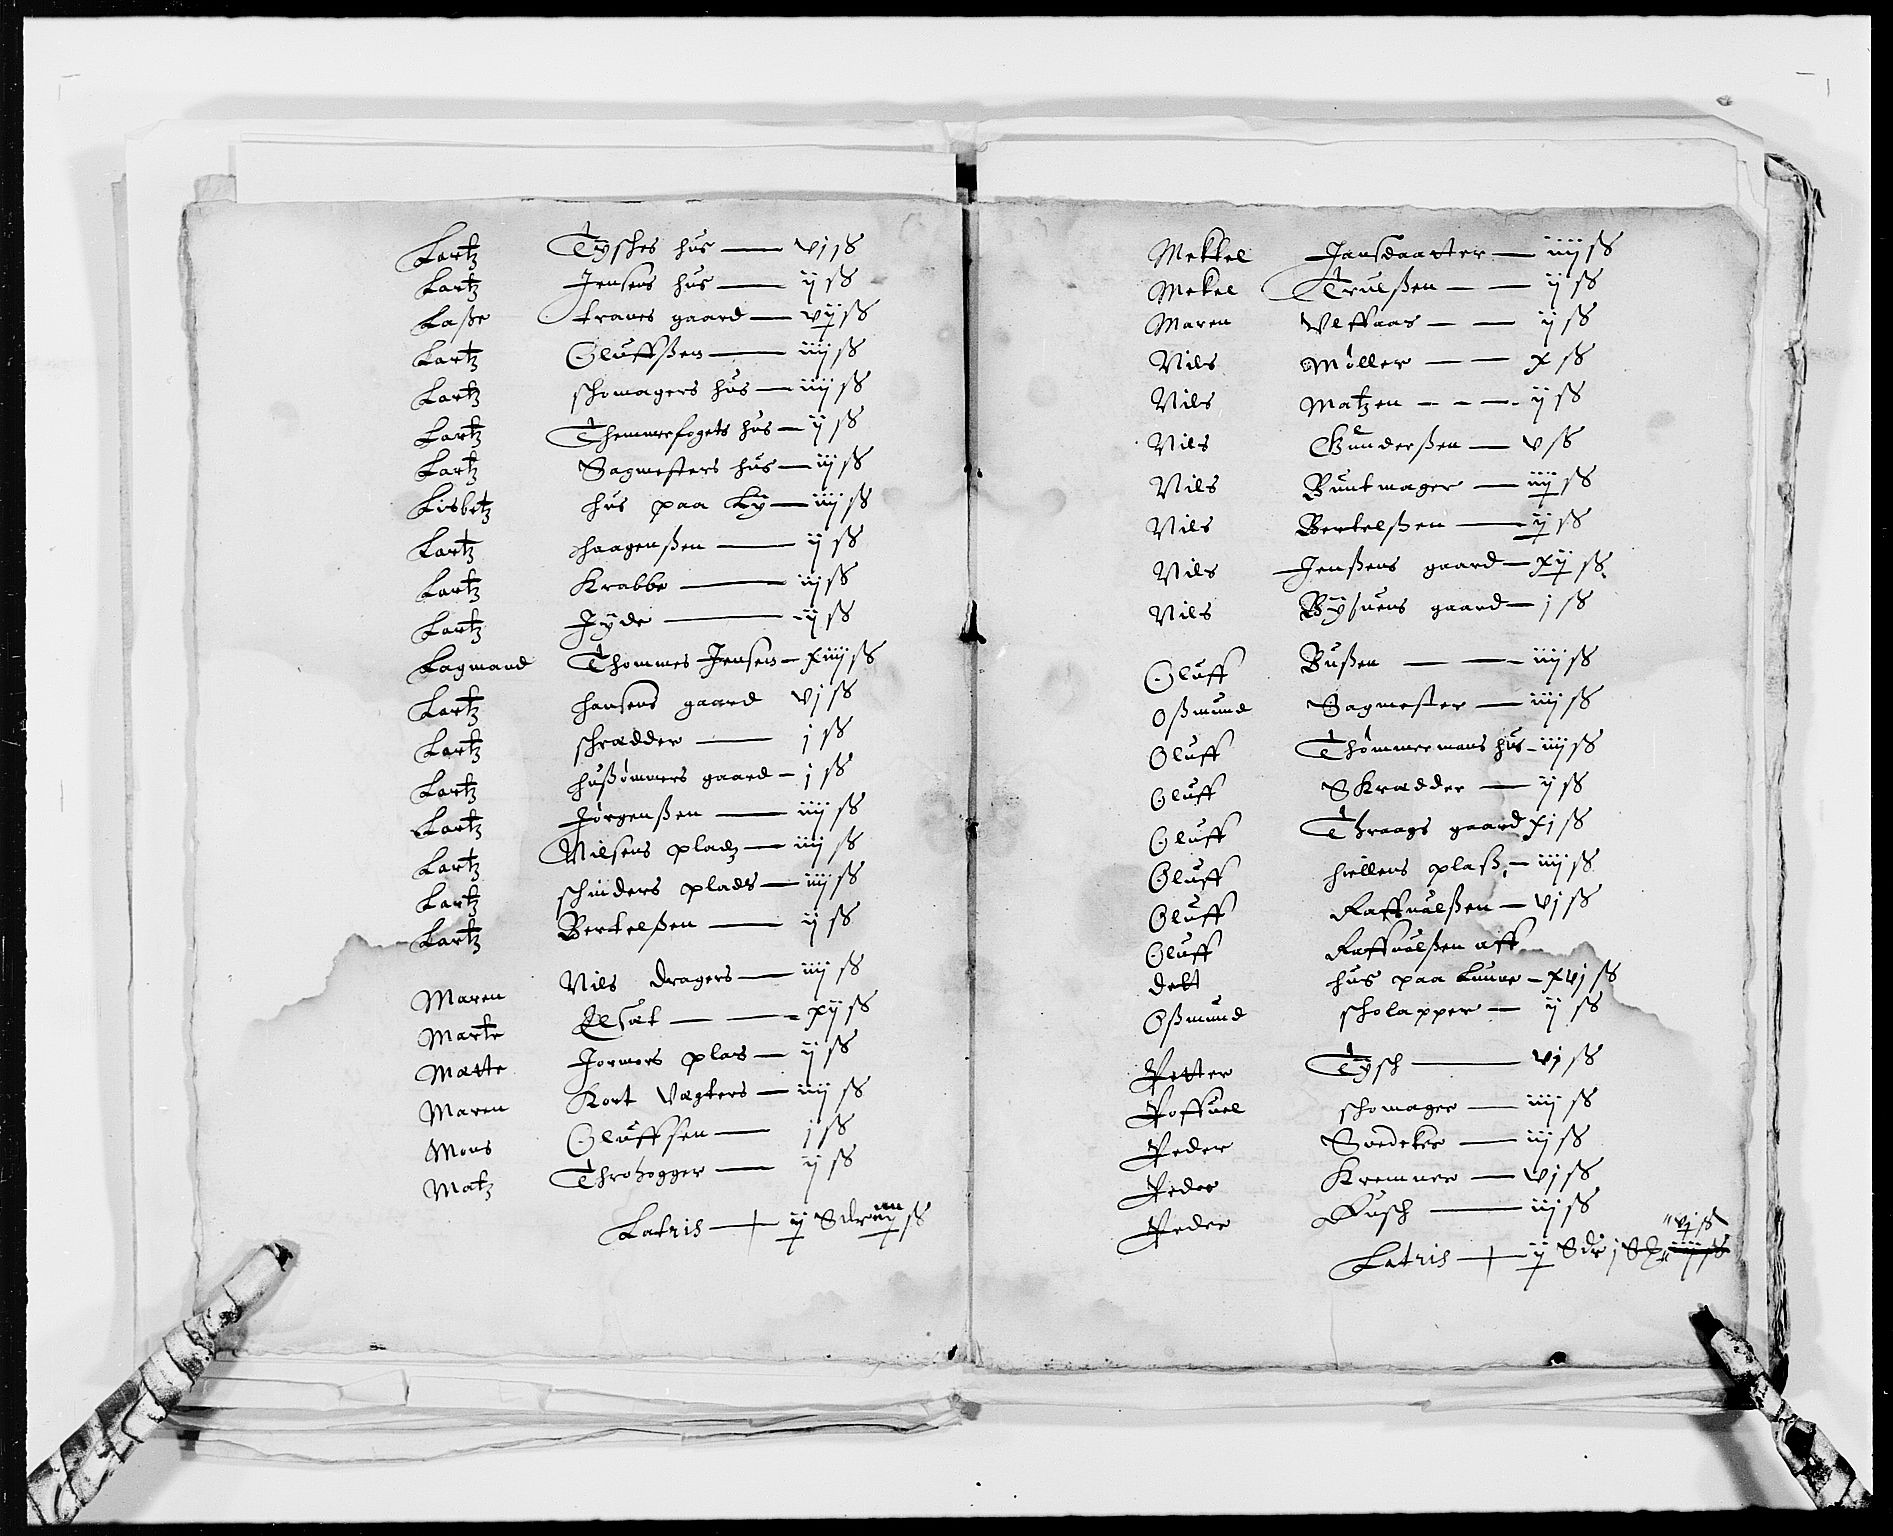 Lartz Tysches hus — vj sß
Lartz Jensens hus — ij sß
Laße tranes gaard — vij sß
Lartz Oluffßen — iiij sß
Lartz schomagers hus — iiij sß
Lartz Themmerfogets hus — ij sß
Lartz Sagmesters hus — iij sß
Lisbetz hus paa Ly — iiij sß
Lartz haagenßen — ij sß
Lartz Krabbe — iij sß
Lartz Jyde — ij sß
Lagmand Thommes Jensen — xiiij sß
Lartz hansens gaard vj sß
Lartz schrædder — j sß
Lartz hußømmers gaard — j sß
Lartz Jørgenßen — iiij sß
Lartz Nilsens pladz — iiij sß
Lartz schinders plads — iiij sß
Lartz Bertelßen — ij sß
Maren Nils dragers — iiij sß
Marte — xij sß
Mætte Jormors plas — ij sß
Maren Kort Vegters — iiij sß
Mons Oluffsen — j sß
Matz Throhogger — ij sß
Latris — ij Sdlr sß
Mekkel Jansdaatter — iiij sß
Mekel Trulßen — ij sß
Maren Ulffaas — ij sß
Nils Møller — x sß
Nils Matzen — ij sß
Nils Gunderßen — v sß
Nils Buntmager — iiij sß
Nils Bertelßen — ij sß
Nils Jenßens gaard — xij sß
Nils gaard — j sß
Oluff Bußen — iiij sß
Oßmund Sagmester — iiij sß
Oluff Thømmermans hus — iiij sß
Oluff Skrædder — ij sß
Oluff Thraags gaard xj sß
Oluff hiellens plaß — iiij sß
Oluff Raffuelßen — vj sß
Oluff Raffuelßen aff
dett hus paa Luuen — xvj sß
Oßmund scholapper — ij sß
Petter Tysch — vj sß
Poffuel schomager — iiij sß
Peder Suedeker — iij sß
Peder Kremmer — vj sß
Peder Busch — iiij sß
vj sß
Latris — ij Sdlr j iiij sß